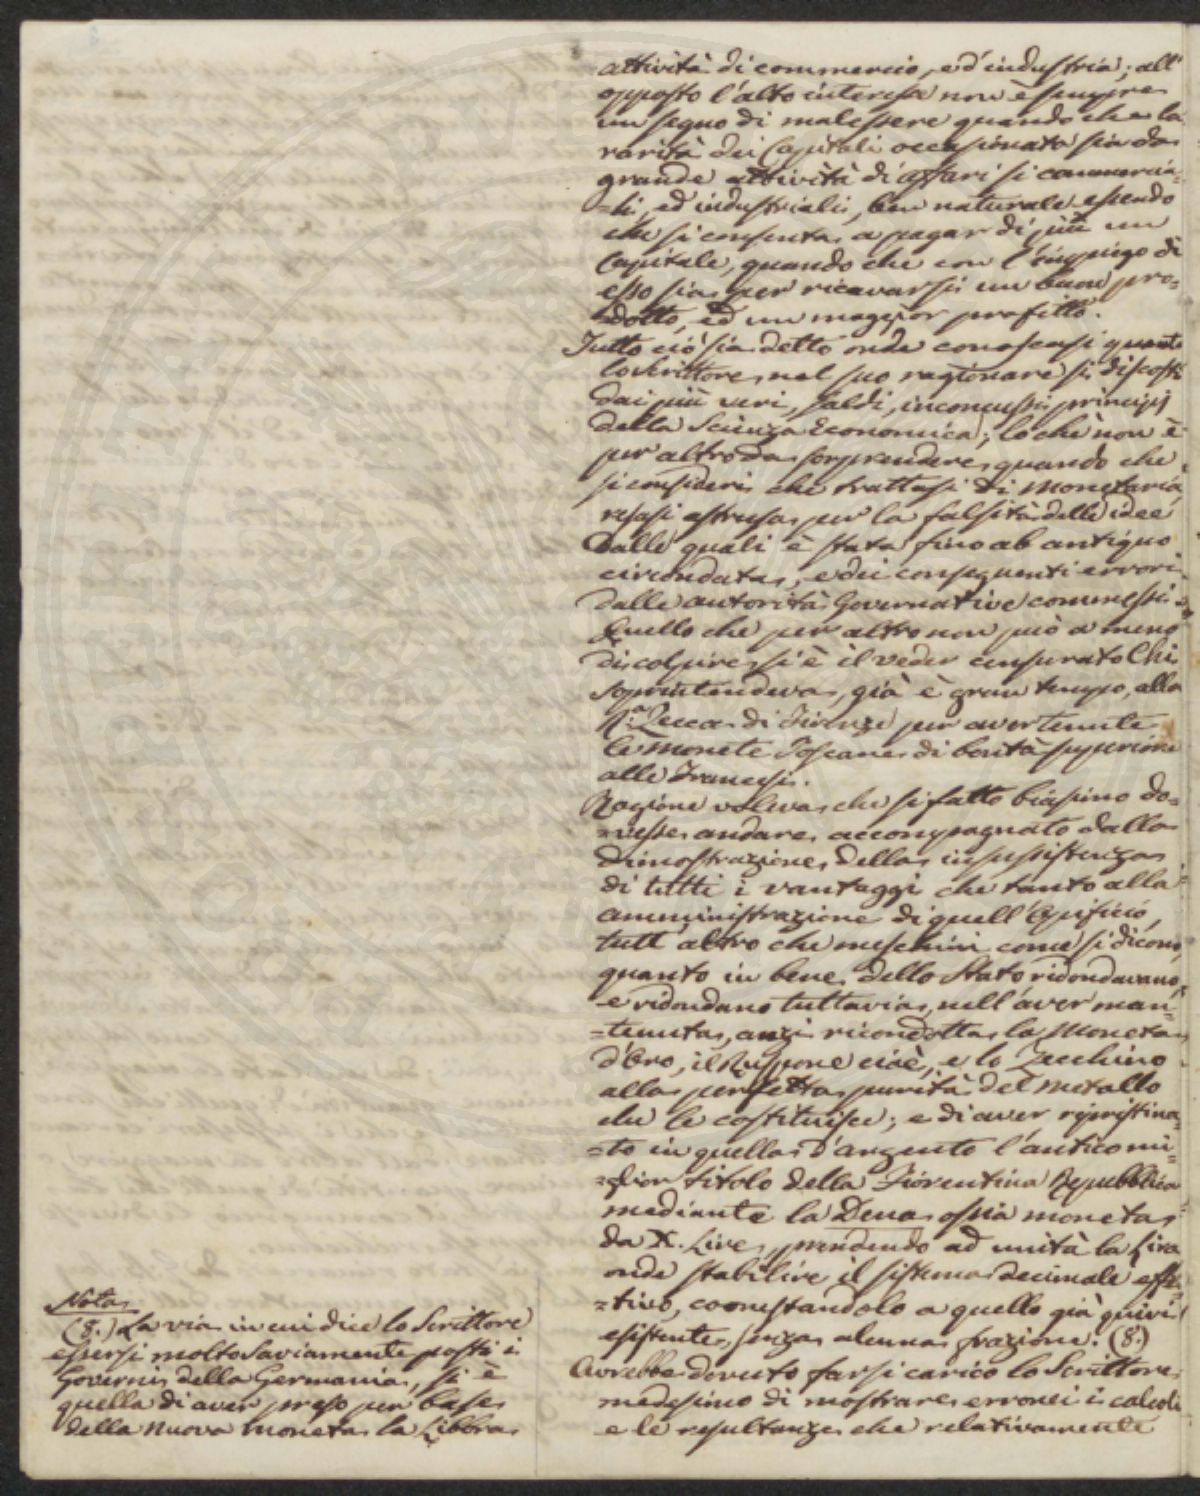 attività di commercio, ed' industria; all'
opposto l'alto interesse non è sempre
un segno di malessere quando che la
rarità dei Capitali occasionata sia da
grande attività di affari si commercia-
=li, ed industriali, ben naturale essendo
che si consenta a pagar di più un
Capitale, quando che con l'impiego di
esso sia per ricavarsi un buon pro=
=dotto, ed un maggior profitto.
Tutto ciò sia detto onde conoscasi quanto
lo Scrittore nel suo ragionare si discosti
dai più veri, saldi, inconcussi principj
della Scienza Economica; lo che non è
per altro da sorprendere quando che
si consideri che trattasi di Monetaria,
resasi astrusa per la falsità delle idee
dalle quali è stata fino ab antiquo
circondata, e dei conseguenti errori
dalle autorità Governative commessi.
Quello che per altro non può a meno
di colpire si è il veder censurato Chi
soprintendeva, già è gran tempo, alla
R.a Zecca di Firenze per aver tenute
le monete Toscane di bontà superiore
alle Francesi.
Ragione voleva che sifatto biasimo do=
=vesse andare accompagnato dalla
dimostrazione della insussistenza
di tutti i vantaggi che tanto alla
amministrazione di quell'Opificio,
tutt'altro che meschini come si dicono,
quanto in bene dello Stato ridondavano,
e ridondano tuttavia, nell'aver man=
=tenuta, anzi ricondotta la Moneta
d'Oro, il Ruspone cioè, e lo Zecchino
alla perfetta purità del metallo
che le costituisce; e di aver ripristina=
=to in quella d'argento l'antico mi=
=glior titolo della Fiorentina Repubblica
mediante la Dena ossia moneta
da X. Lire, prendendo ad unità la Lira
onde stabilire il sistema decimale effet=
=tivo, coonestandolo a quello già quivi
esistente, senza alcuna frazione. (8.)
Avrebbe dovuto farsi carico lo Scrittore
medesimo di mostrare erronei i calcoli
e le resultanze che relativamente
Nota
(8.) La via in cui dice lo Scrittore
essersi molto saviamente posti i
Governi della Germania, si è
quella di aver preso per base
della nuova moneta la Libbra